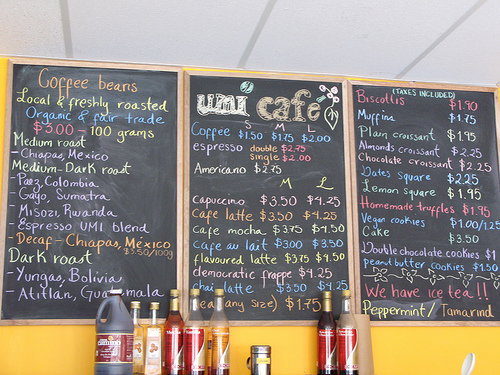 Coffee beans
Local & freshly roasted
Organic & fair trade
$5.00 - 100 grams
Medium roast
- Chiapas, Mexico
Medium-Dark roast
- Paez, Colombia
- Gayo, Sumatra
- Misozi, Rwanda
- Espresso UMI blend
Decaf - Chiapas, Mexico
$5.50/100g
Dark roast
- Yungas, Bolivia
- Atitlan, Guatemala
umi cafe
S M L
Coffee $1.50 $1.75 $2.00
espresso double $2.75
single $2.00
Americano $2.75
M L
Capuccino $3.50 $4.25
Cafe latte $3.50 $4.25
Cafe mocha $3.75 $4.50
Cafe au lait $3.00 $3.50
flavoured latte $3.75 $4.50
democratic frappe $4.25
Chai latte $3.50 $4.25
(any size) $1.75
(TAXES INCLUDED)
Biscottis $1.50
Muffins $1.75
Plain croissant $1.95
Almonds croissant $2.25
Chocolate croissant $2.25
Dates square $2.25
Lemon square $1.95
Homemade truffles $1.95
Vegan cookies $1.00/1.25
Cake $3.50
Double chocolate cookies $1
peanut butter cookies $1.50
We have ice tea!!
Peppermint/Tamarind